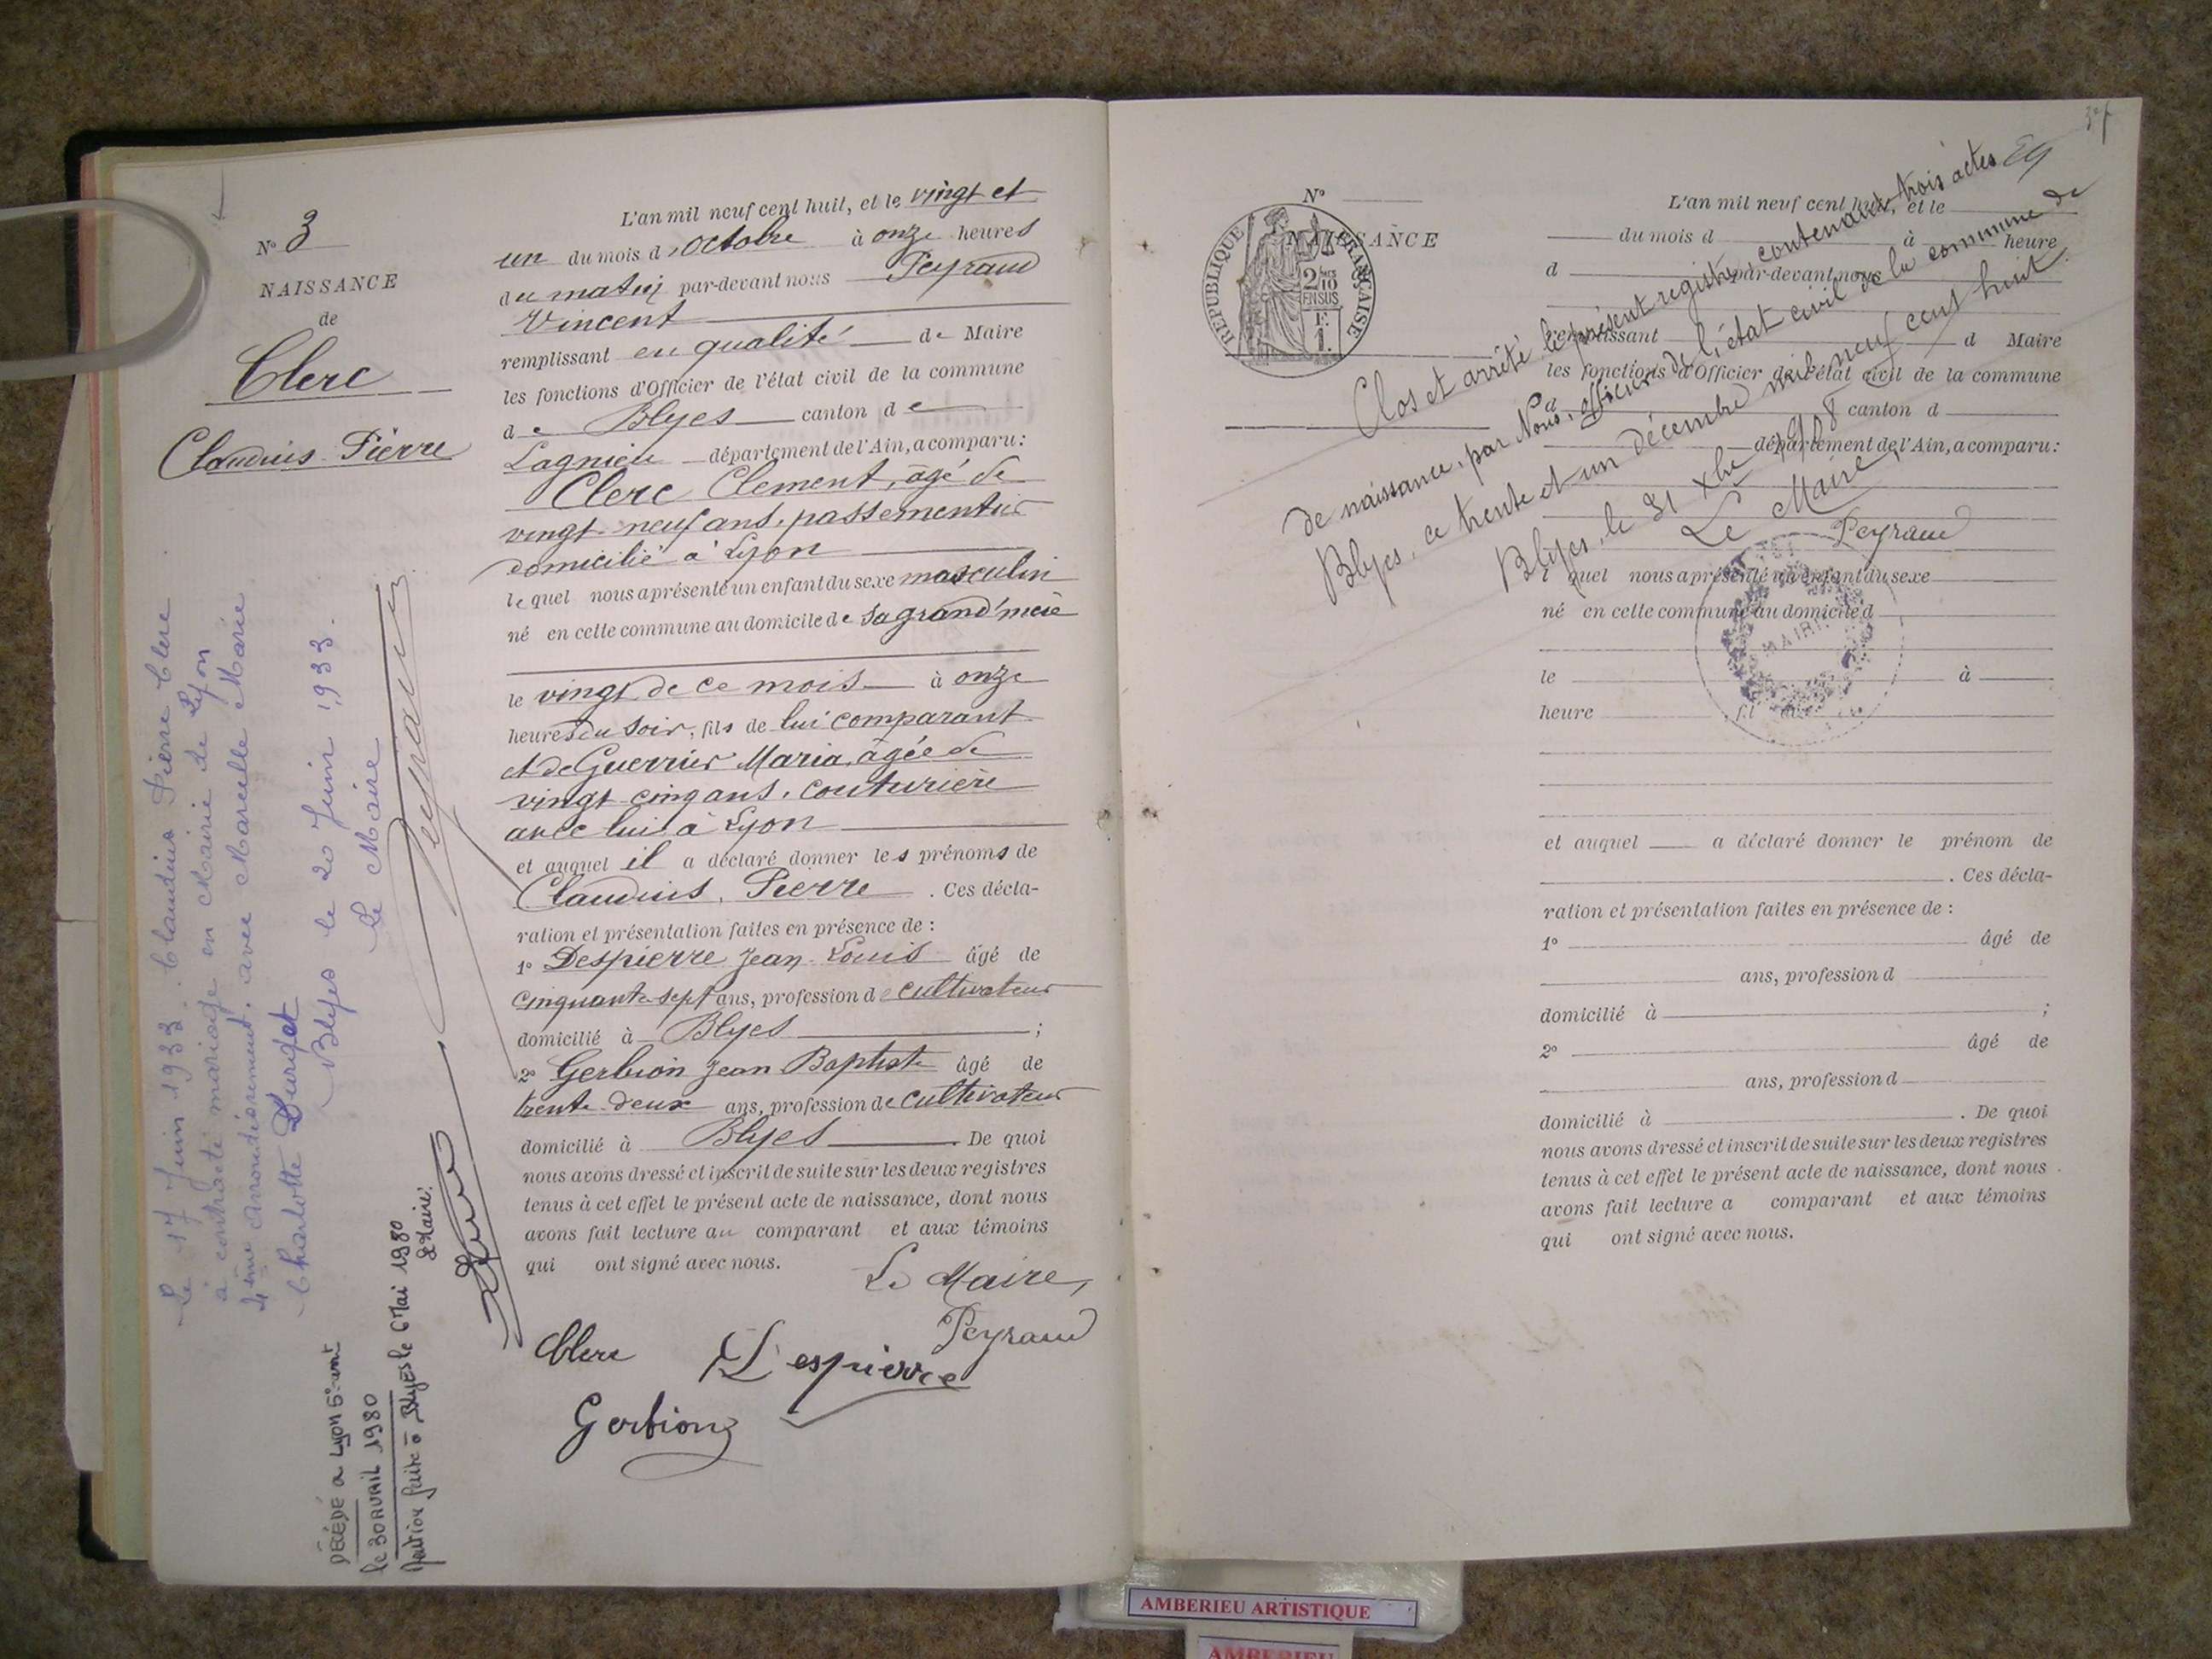 N° 3
NAISSANCE
de
Clerc
Claudius Pierre
L'an mil neuf cent huit, et le vingt et
un du mois d'octobre à onze heures
du matin par-devant nous Peyraud
Vincent
remplissant en qualité de Maire
les fonctions d'Officier de l'état civil de la commune
de Blyes canton de
Lagnieu département de l'Ain, a comparu :
Clerc Clement, âgé de
vingt-neuf ans, passementier
domicilié à Lyon
lequel nous a présenté un enfant du sexe masculin
né en cette commune au domicile de sa grand'mère
le vingt de ce mois à onze
heures du soir, fils de lui comparant
et de Guerrier Maria, âgée de
vingt cinq ans, couturière
avec lui à Lyon
et auquel il a déclaré donner les prénoms de
Claudius, Pierre. Ces décla-
ration et présentation faites en présence de :
1° Despierre Jean Louis âgé de
cinquante-sept ans, profession de cultivateur
domicilié à Blyes ;
2° Gerbion Jean Baptiste âgé de
trente-deux ans, profession de cultivateur
domicilié à Blyes. De quoi
nous avons dressé et inscrit de suite sur les deux registres
tenus à cet effet le présent acte de naissance, dont nous
avons fait lecture au comparant et aux témoins
qui ont signé avec nous.
Le Maire,
Peyraud
Clerc Despierre
Gerbion
Le 17 Juin 1933. Claudius Pierre Clerc
a contracté mariage en Mairie de Lyon
4ème arrondissement. avec Marcelle Marie
Charlotte
Blyes le 20 Juin 1933.
Le Maire
Peyraud
DÉCÉDÉ à Lyon 5°
le 30 AVRIL 1980
faite à Blyes le 6 Mai 1980
le Maire:
N°
NAISSANCE
RÉPUBLIQUE FRANÇAISE
2/10 EN SUS
F.
1.
L'an mil neuf cent huit, et le
du mois d à heure
d par-devant nous
remplissant d Maire
les fonctions d'Officier de l'état civil de la commune
d canton d
département de l'Ain, a comparu :
l quel nous a présenté un enfant du sexe
né en cette commune au domicile d
le à
heure fil de
et auquel a déclaré donner le prénom de
. Ces décla-
ration et présentation faites en présence de :
1° âgé de
ans, profession d
domicilié à ;
2° âgé de
ans, profession d
domicilié à . De quoi
nous avons dressé et inscrit de suite sur les deux registres
tenus à cet effet le présent acte de naissance, dont nous
avons fait lecture a comparant et aux témoins
qui ont signé avec nous.
Clos et arrêté le présent registre, contenant trois actes
de naissance, par Nous, officier de l'état civil de la commune de
Blyes, ce trente et un décembre mil neuf cent huit
Blyes, le 31 Xbre 1908
Le Maire,
Peyraud
MAIRIE
AMBERIEU ARTISTIQUE
AMBERIEU